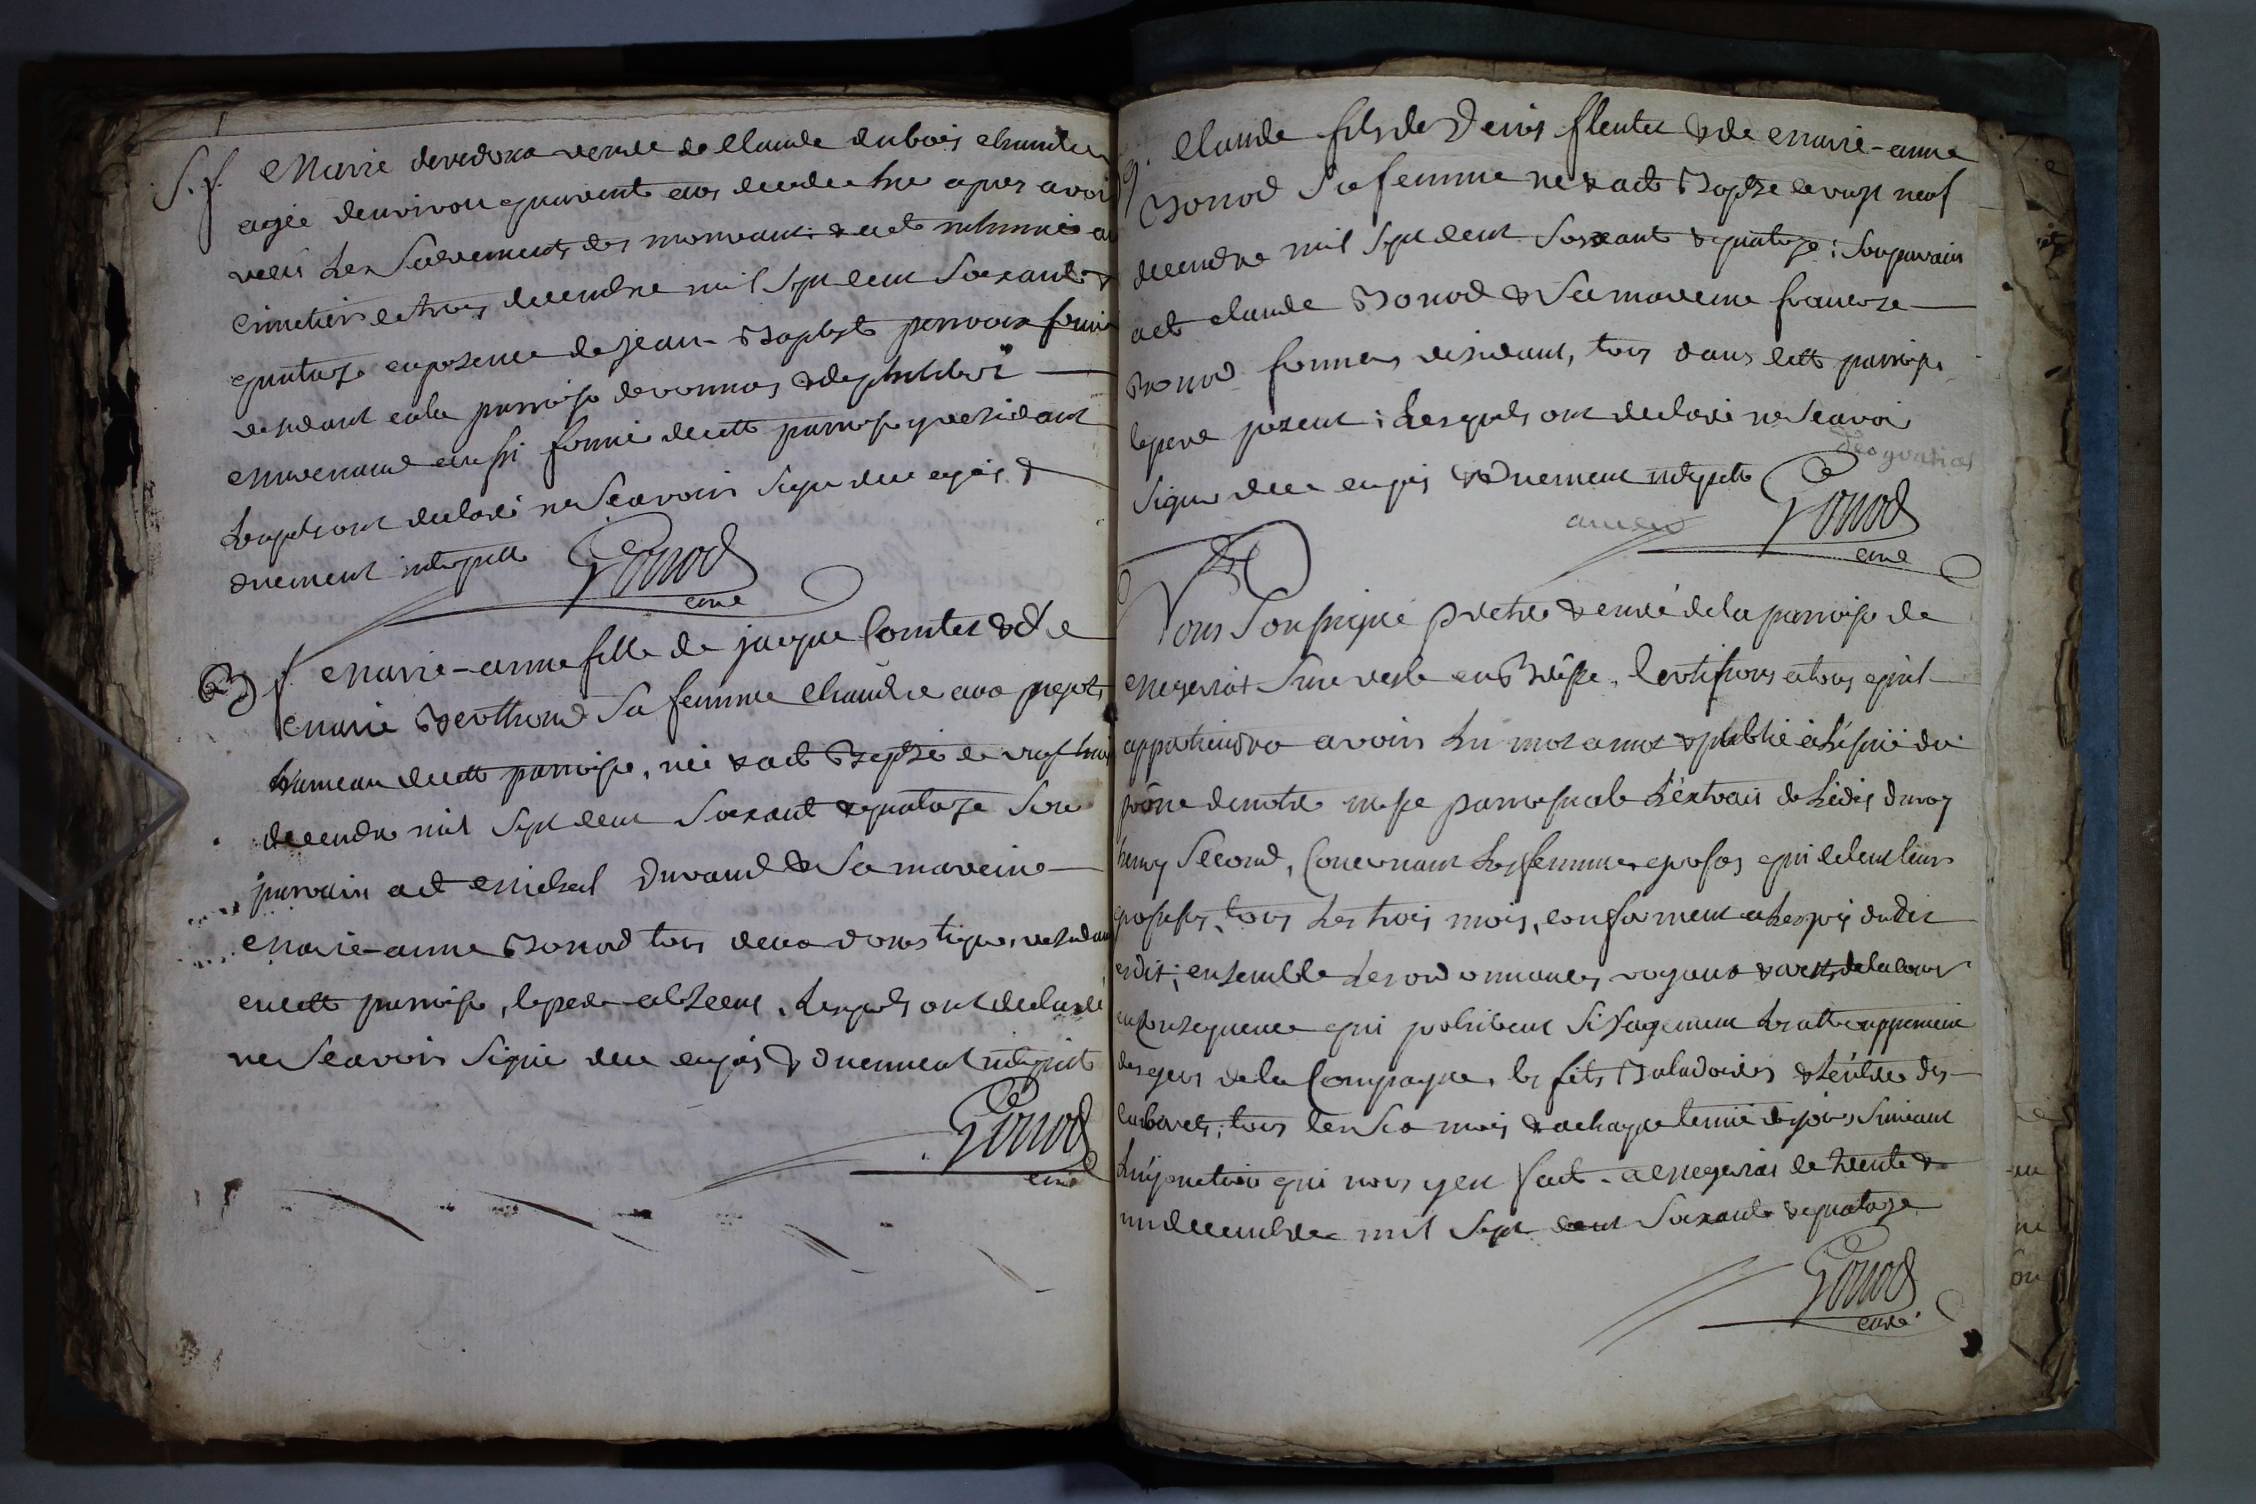 S. f. Marie devedoux veuve de Claude dubois chandée
agée denviron quarente ans deceda hier apres avoir
receü Les Sacrements des mourants & acté inhumée au
cimetiere le trois decembre mil Sept cent Soixante &
quatorze en presence de jean-Baptiste perroux fermier
residant en la parroisse de vonnas & de philibert
aussi fermier de cette parroisse y residant
Lesquels ont declaré ne Scavoir Signer de ce enquis &
duement interpellé Gonod
curé
B f. Marie-anne fille de jacque Comtet & de
Marie Berthoud Sa femme aux
hameau de cette parroisse, née & acté Baptisée le vingt huit
decembre mil Sept cent Soixante & quatorze Son
parrain acté Michel Durand & Sa mareine
Marie-anne Bonod tous deux domestiques residant
en cette parroisse, le pere absent, Lesquels ont declaré
ne Scavoir Signer de ce enquis & duement interpellé
Gonod
curé
g. Claude fils de Denis fleutet & de Marie-anne
Bonod Sa femme né & acté Baptisé le vingt neuf
decembre mil Sept cent Soixante & quatorze : Son parrain
acté claude Bonod & Sa mareine francoise
Bonod fermiers residant, tous dans cette parroisse
le pere present ; Lesquels ont declaré ne Scavoir
deo gratias
Signer de ce enquis & Duement interpellé Gonod
amen
curé
Nous Soussigné Prêtre & curé de la parroisse de
Mezeriat Sur vesle en Bresse, Certifions atous qu'il
appartiendra avoir Lu mot amot & publié à L'issüe du
prône de notre messe parroissiale L'extrait de L'edit du roy
henry Second, Concernant Les femmes grosses qui celent leurs
grossesses, tous Les trois mois, conformement a Lesprit dudit
edit ; ensemble Les ordonnances royaux & arrets de la cour
en Consequence qui prohibent Si Sagement Les attrouppements
des gens de la Campagne, les fêtes Baladoires & L'entrée des
Cabarets, tous les Six mois & a chaque terme de jours Suivant
L'injonction qui nous y est faite. a Mezeriat le trente &
un decembre mil Sept cent Soixante & quatorze
Gonod
curé